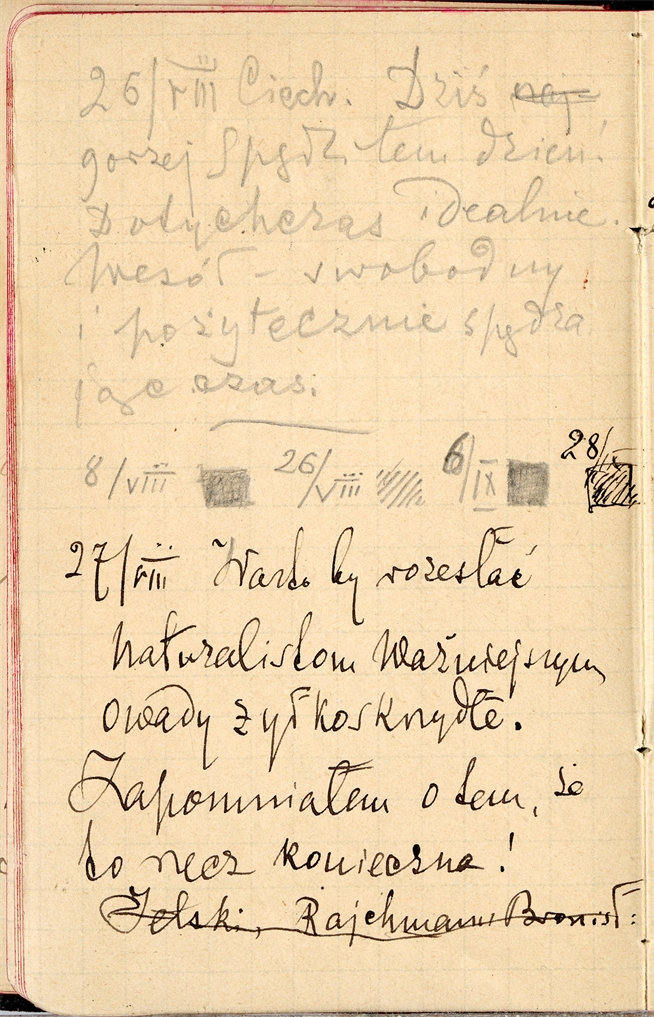 26/VIII Ciech. Dziś naj-
gorzej spędziłem dzień!
Dotychczas idealnie.
Wesół – swobodny
i pożytecznie spędza
jąc czas.
8/VIII 26/VIII 6/IX 28/IX
27/VIII Warto by rozesłać
naturalistom ważniejszym
owady żyłkoskrzydłe.
Zapomniałem o tem, że
to rzecz konieczna!
Jelski, Rajchman, Bronisł: